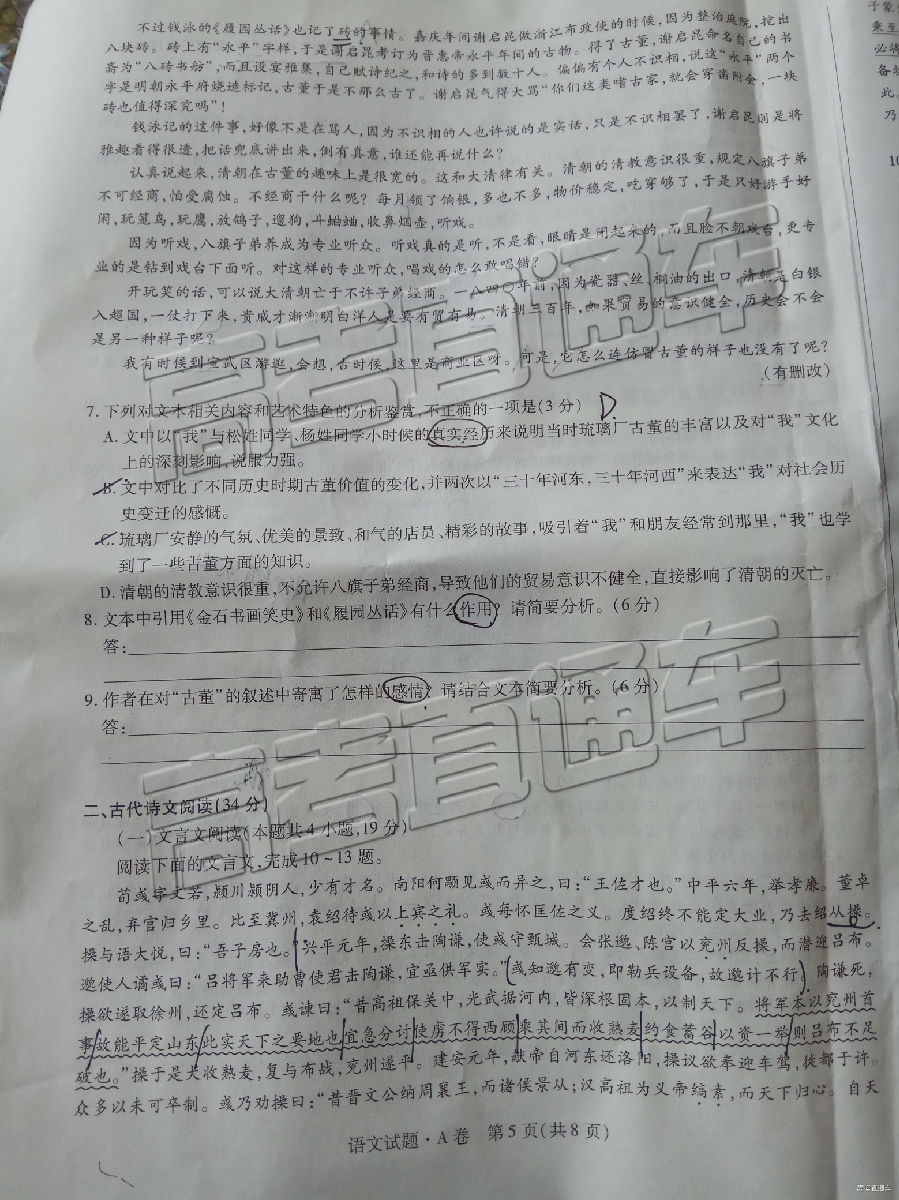 不过钱泳的《履园丛话》也记了砖的事情。嘉庆年间谢启昆做浙江布政使的时候,因为整治庭院,挖出
八块砖。砖上有“永平”字样,于是谢启昆考订为晋惠帝永平年间的古物。得了古董,谢启昆命名自己的书
斋为“八砖书舫”,而且设宴雅集,自己赋诗纪之,和诗的多到数十人。偏偏有个人不识相,说这“永平”两个
字是明朝永平府烧造标记,古董于是不那么古了。谢启昆气得大骂“你们这类嗜古家,就会穿凿附会,一块
砖也值得深究吗”!
钱泳记的这件事,好像不是在骂人,因为不识相的人也许说的是实话,只是不识相罢了,谢启昆则是将
雅趣看得很透,把话兜底讲出来,倒有真意,谁还能再说什么?
认真说起来,清朝在古董的趣味上是很宽的。这和大清律有关。清朝的清教意识很重,规定八旗子弟
不可经商,怕受腐蚀。不经商干什么呢?每月领了饷银,多也不多,物价稳定,吃穿够了,于是只好游手好
闲,玩笼鸟,玩鹰,放鸽子,遛狗,斗蛐蛐,收鼻烟壶,听戏。
因为听戏,八旗子弟养成为专业听众。听戏真的是听,不是看,眼睛是闭起来的,而且脸不朝戏台,更专
业的是钻到戏台下面听。对这样的专业听众,唱戏的怎么敢唱错?
开玩笑的话,可以说大清朝亡于不许子弟经商。一八四〇年前,因为瓷器、丝、桐油的出口,清朝是白银
入超国,一仗打下来,贵戚才渐渐明白洋人是要有贸有易。清朝三百年,如果贸易的意识健全,历史会不会
是另一种样子呢?
我有时候到宣武区游逛,会想,古时候,这里是商业区呀。可是,它怎么连仿冒古董的样子也没有了呢?
(有删改)
7. 下列对文本相关内容和艺术特色的分析鉴赏,不正确的一项是(3 分) D.
A. 文中以“我”与松姓同学、杨姓同学小时候的真实经历来说明当时琉璃厂古董的丰富以及对“我”文化
上的深刻影响,说服力强。
B. 文中对比了不同历史时期古董价值的变化,并两次以“三十年河东,三十年河西”来表达“我”对社会历
史变迁的感慨。
C. 琉璃厂安静的气氛、优美的景致、和气的店员、精彩的故事,吸引着“我”和朋友经常到那里,“我”也学
到了一些古董方面的知识。
D. 清朝的清教意识很重,不允许八旗子弟经商,导致他们的贸易意识不健全,直接影响了清朝的灭亡。
8. 文本中引用《金石书画笑史》和《履园丛话》有什么作用?请简要分析。(6 分)
答:
9. 作者在对“古董”的叙述中寄寓了怎样的感情?请结合文本简要分析。(6 分)
答:
二、古代诗文阅读(34 分)
(一)文言文阅读(本题共 4 小题,19 分)
阅读下面的文言文,完成 10~13 题。
荀彧字文若,颍川颍阴人,少有才名。南阳何颙见彧而异之,曰:“王佐才也。”中平六年,举孝廉。董卓
之乱,弃官归乡里。比至冀州,袁绍待彧以上宾之礼。彧每怀匡佐之义。度绍终不能定大业,乃去绍从操。
操与语大悦,曰:“吾子房也。”兴平元年,操东击陶谦,使彧守甄城。会张邈、陈宫以兖州反操,而潜迎吕布。
邈使人谲彧曰:“吕将军来助曹使君击陶谦,宜亟供军实。”彧知邈有变,即勒兵设备,故邈计不行。陶谦死,
操欲遂取徐州,还定吕布。彧谏曰:“昔高祖保关中,光武据河内,皆深根固本,以制天下。将军本以兖州首
事故能平定山东此实天下之要地也宜急分讨使虏不得西顾乘其间而收熟麦约食蓄谷以资一举则吕布不足
破也。”操于是大收熟麦,复与布战,兖州遂平。建安元年,献帝自河东还洛阳,操议欲奉迎车驾,徙都于许。
众多以未可卒制。彧乃劝操曰:“昔晋文公纳周襄王,而诸侯景从;汉高祖为义帝缟素,而天下归心。自天
语文试题·A 卷 第 5 页(共 8 页)
高考直通车
高考直通车
子蒙
乘至
必将
备物
此。
乃
10